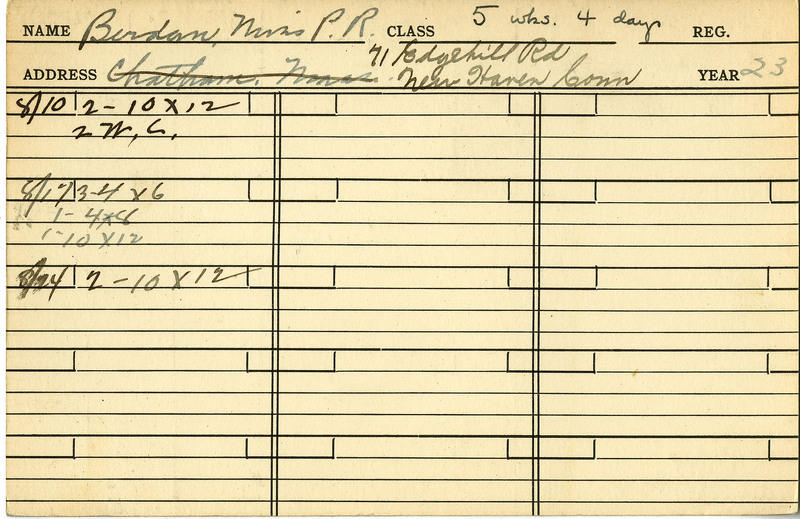 NAME Berdan, Miss P. R. CLASS 5 wks. 4 days REG.
71 Edgehill Rd
ADDRESS Chatham, Mass. New Haven Conn YEAR 23
8/10 2 - 10 X 12
2 W. C.
8/17 3-4 X 6
1 - 4x8
1 - 10 X 12
8/24 2 - 10 X 12